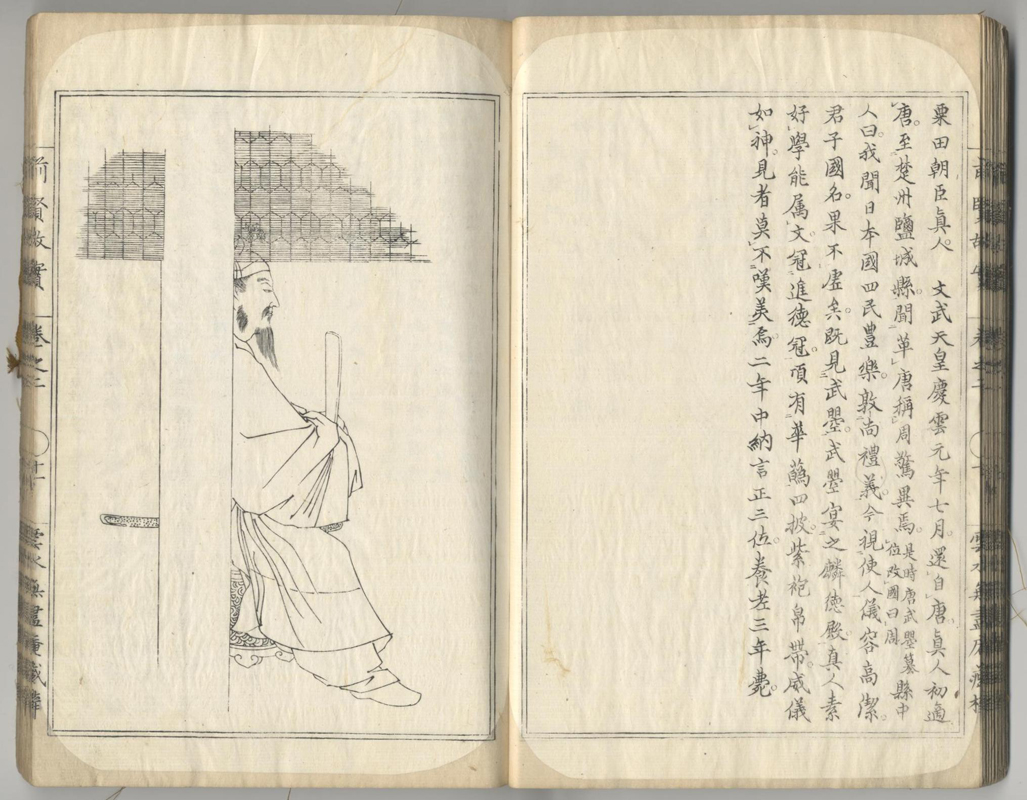 粟田朝臣眞人　文武天皇慶雲元年七月還自唐眞人初適
唐至楚州鹽城縣聞革唐稱周驚異焉是時唐武曌纂位改國曰周縣中
人曰我聞日本國四民豊樂敦尚禮義今視使人儀容高潔
君子國名果不虚矣既見武曌武曌宴之麟徳殿真人素
好學能属文冠進德冠頂有華蘤四披紫袍帛帶威儀
如神見者莫不嘆美焉二年中納言正三位養老三年薨
前賢故實
卷之二